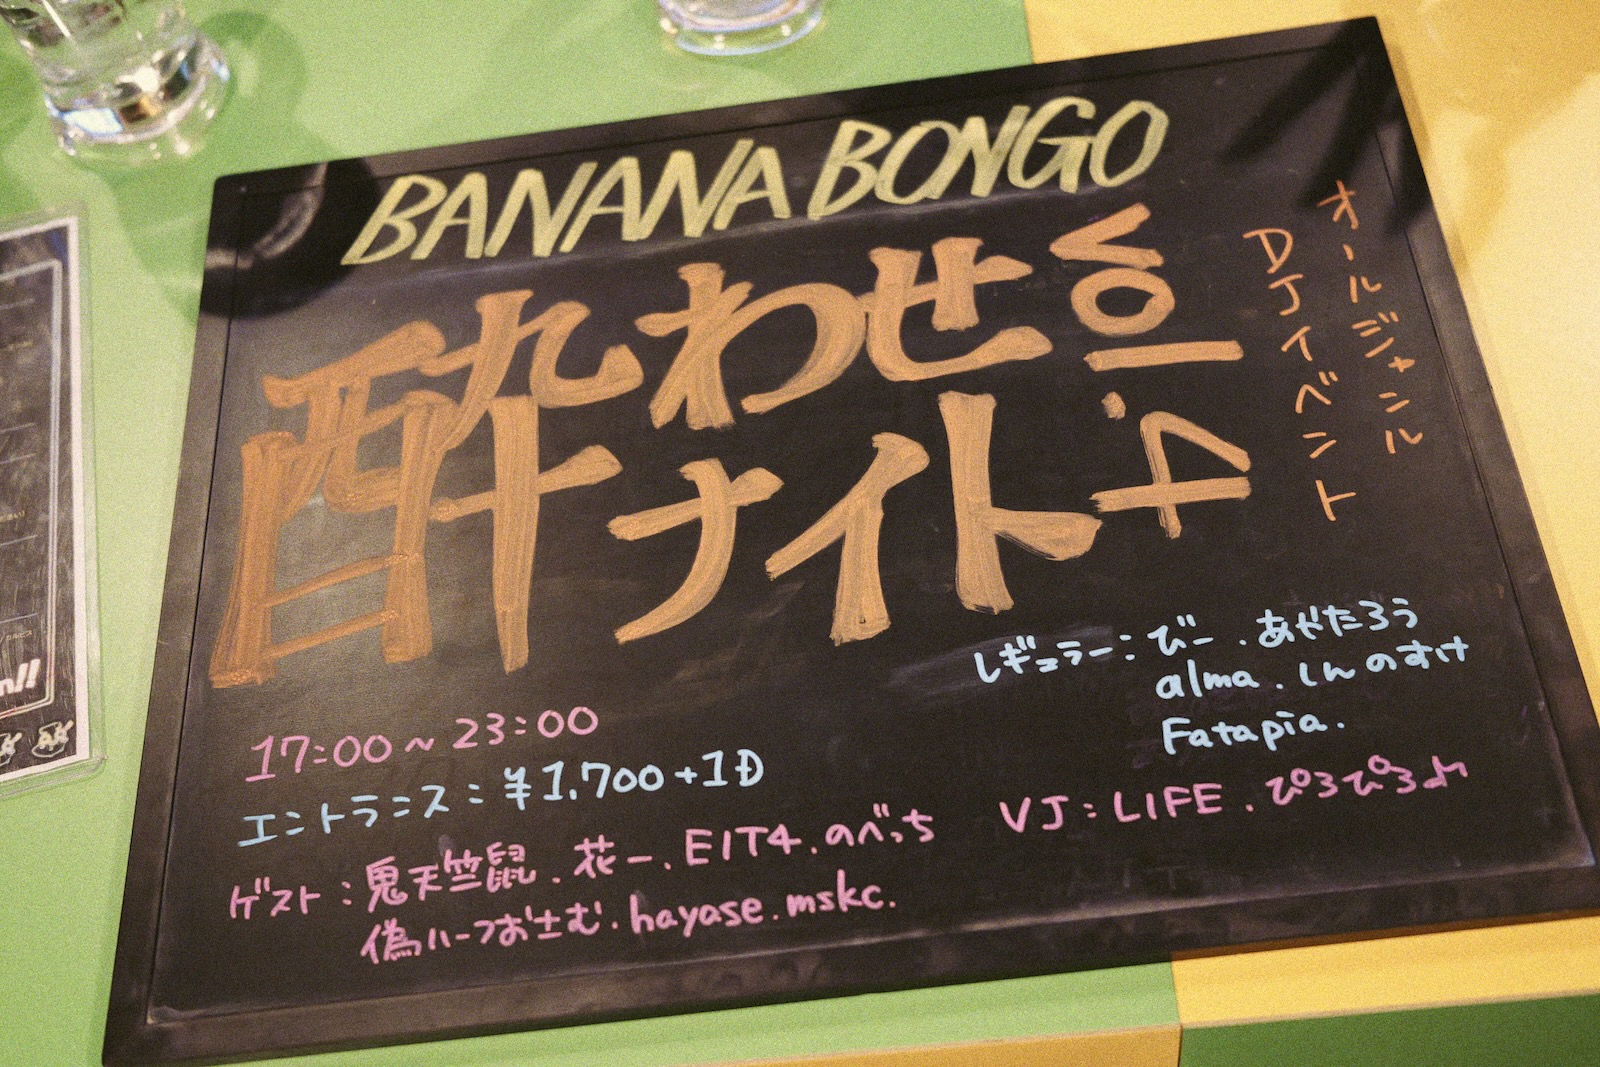 BANANA BONGO
酔わせ
ナイト
vol.4
オールジャンル
DJイベント
レギュラー:びー.あやたろう
alma.しんのすけ
Fatapia.
17:00~23:00
エントランス:¥1,700+1D
ゲスト:鬼天竺鼠.花一.EIT4.のべっち
偽ハーフおさむ.hayase.mskc.
VJ:LIFE.ぴろぴろ♪